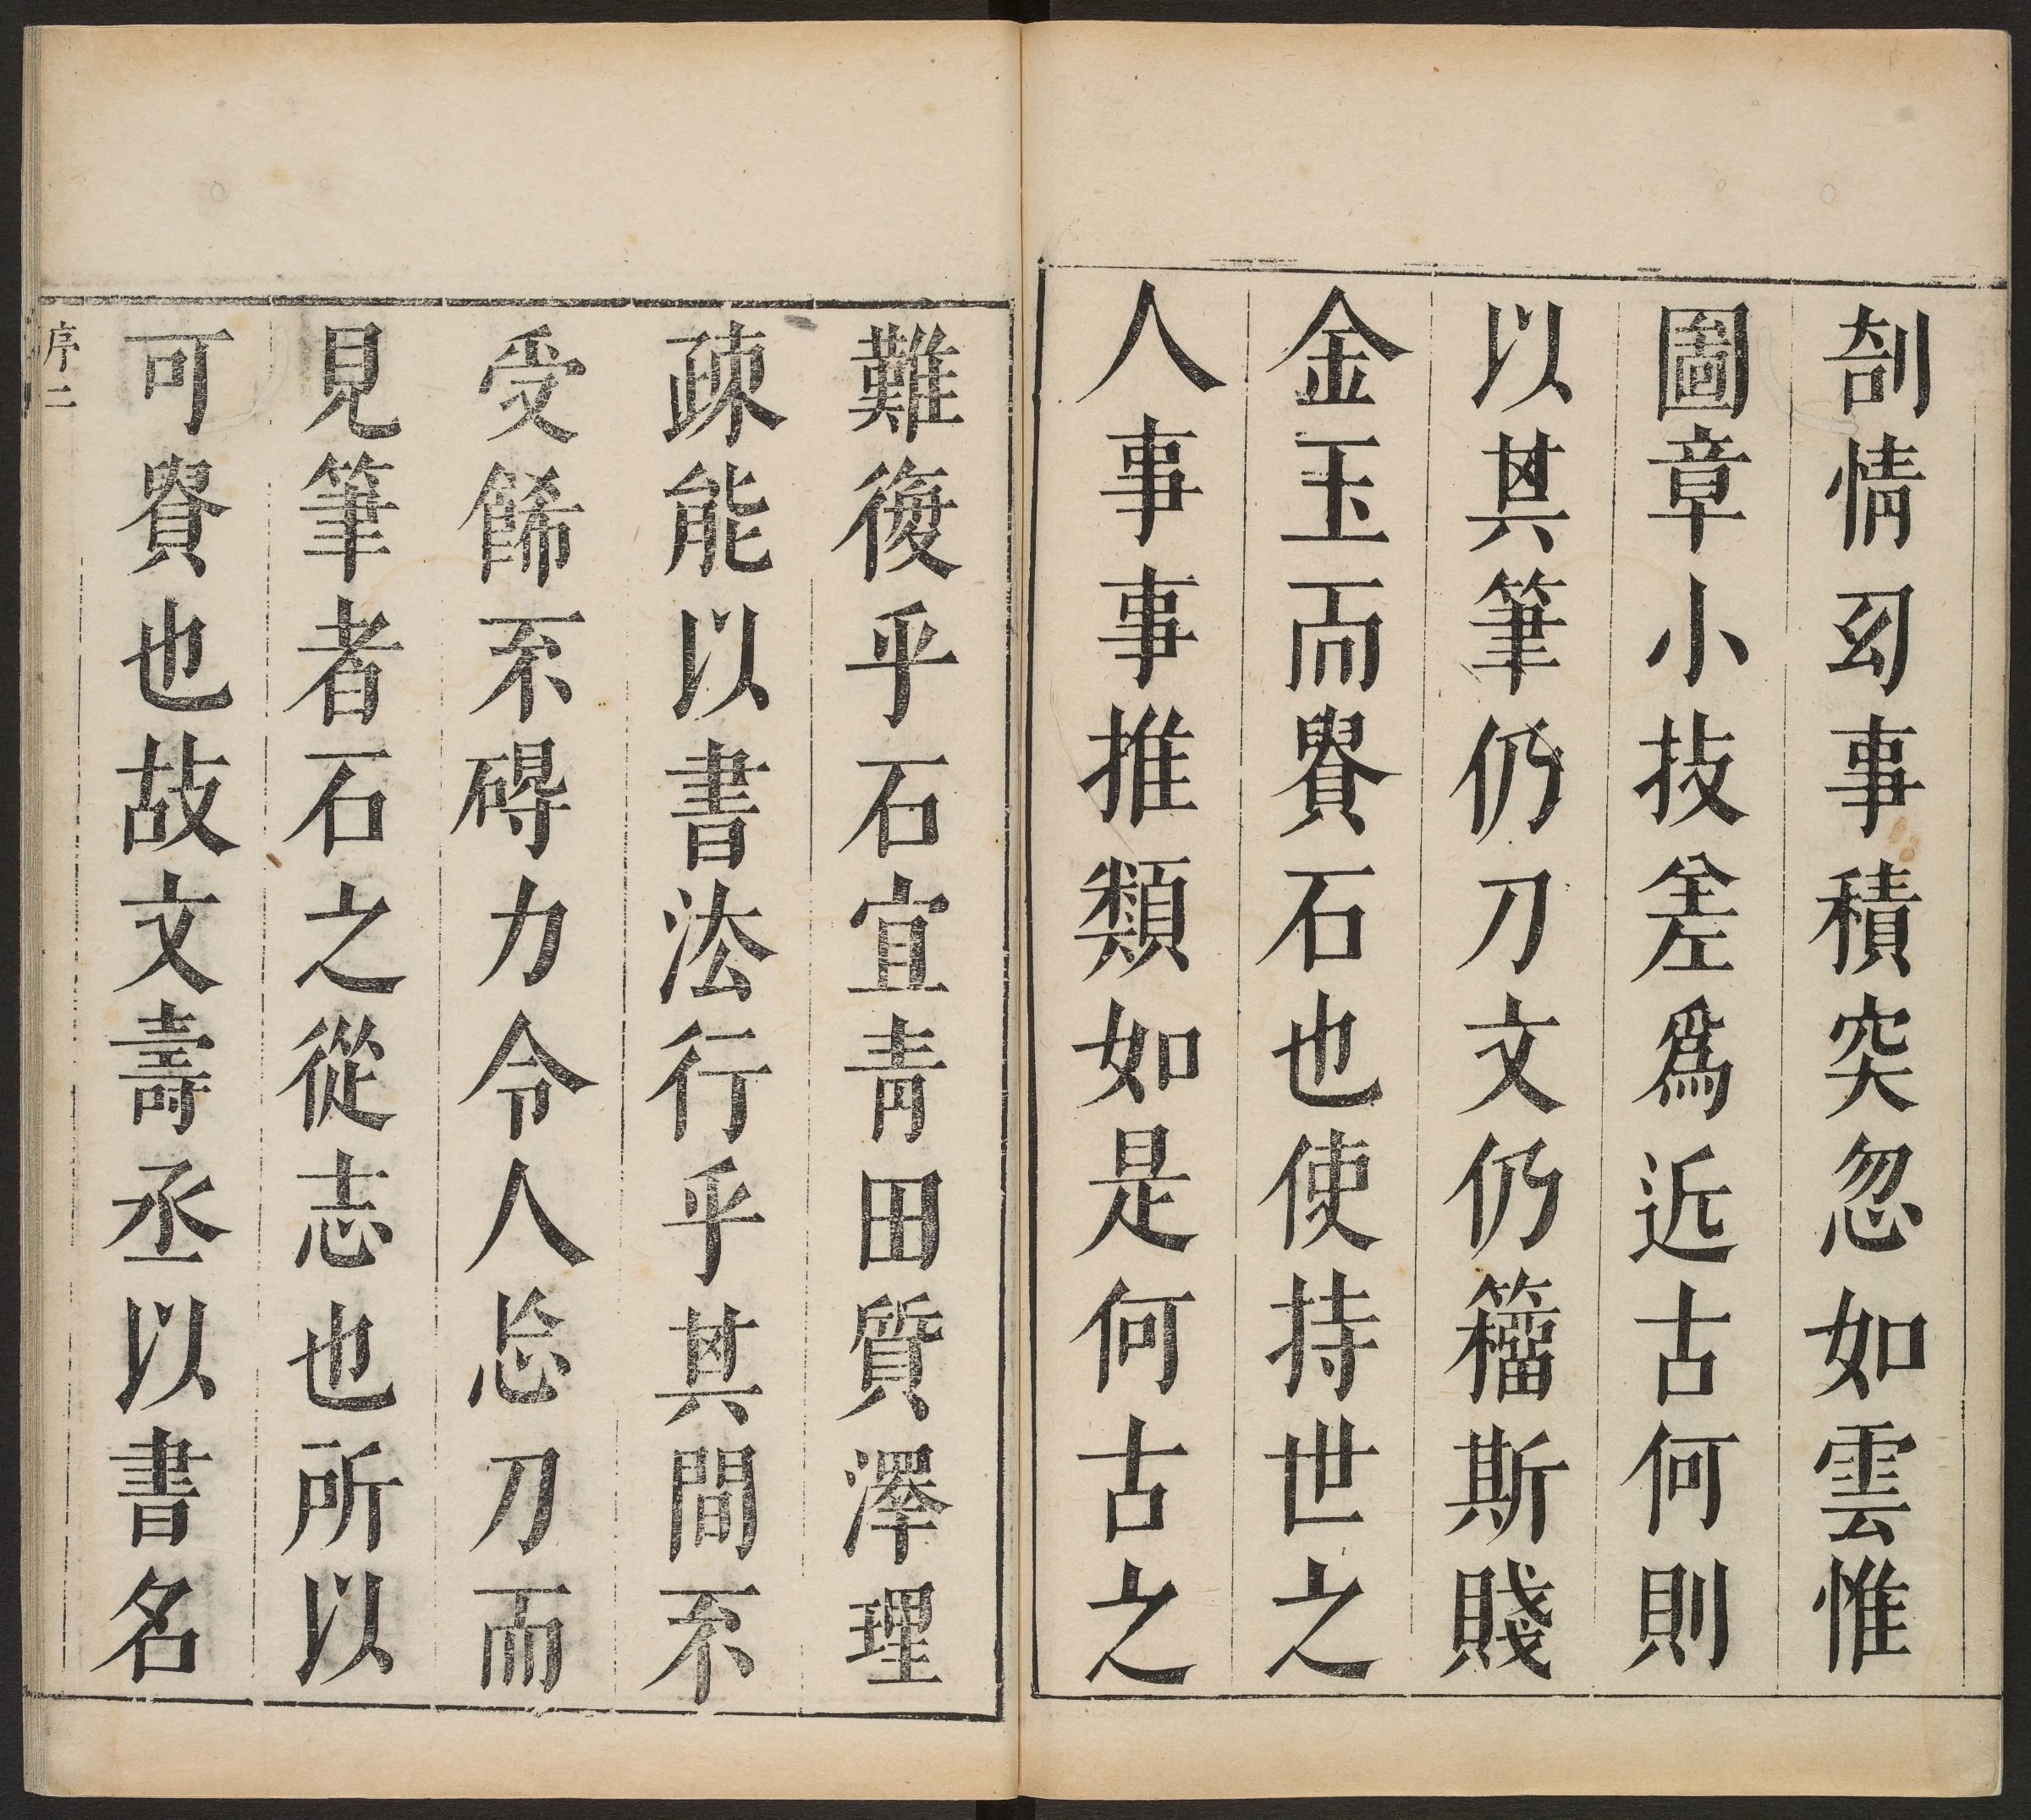 情幻事積突忽如雲惟
圖章小技差爲近古何則
以其筆仍刀文仍籀斯賤
金玉而貴石也使持世之
人事事推類如是何古之
難復乎石宜青田質澤理
疎能以書法行乎其間不
受餙不碍力令人忘刀而
見筆者石之從志也所以
可貴也故文壽丞以書名
序二